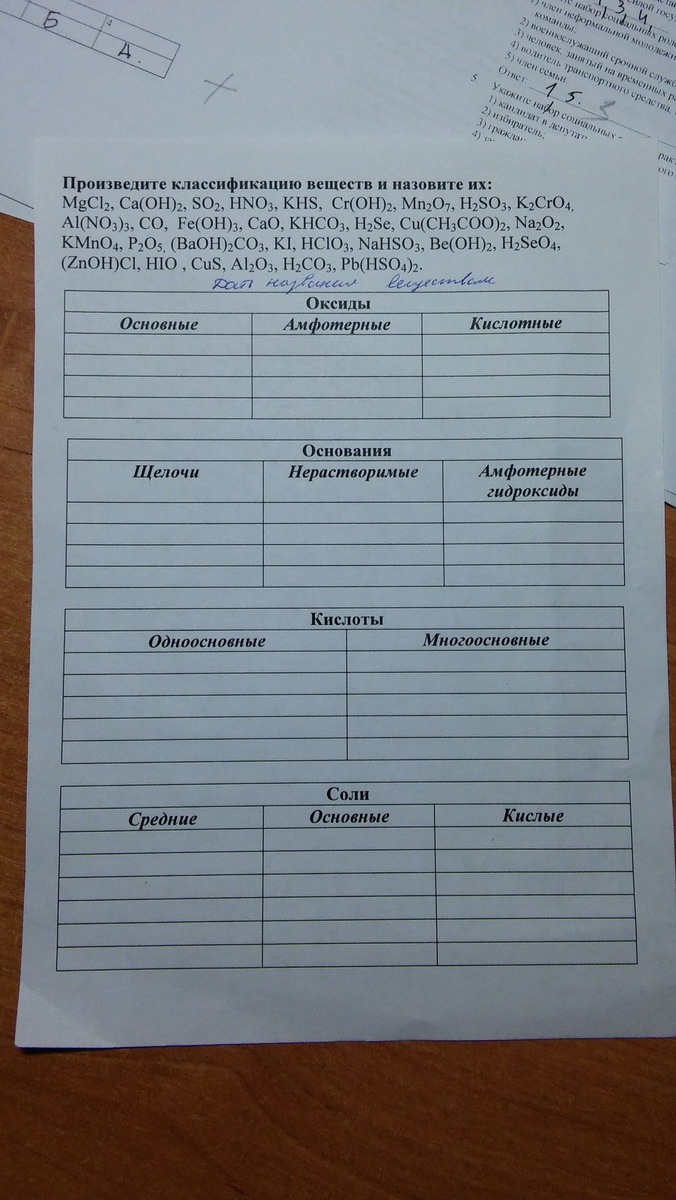 Б
4
А.
3 4
1) член неформальной молодежн
команды;
2) военнослужащий срочной служб
3) человек, занятый на временных р
4) водитель транспортного средства,
5) член семьи.
Ответ: 1 5.
5. Укажите набор социальных
1) кандидат в депутат
2) избиратель,
3) гражда
4)
Произведите классификацию веществ и назовите их:
MgCl₂, Ca(OH)₂, SO₂, HNO₃, KHS, Cr(OH)₂, Mn₂O₇, H₂SO₃, K₂CrO₄,
Al(NO₃)₃, CO, Fe(OH)₃, CaO, KHCO₃, H₂Se, Cu(CH₃COO)₂, Na₂O₂,
KMnO₄, P₂O₅, (BaOH)₂CO₃, KI, HClO₃, NaHSO₃, Be(OH)₂, H₂SeO₄,
(ZnOH)Cl, HIO , CuS, Al₂O₃, H₂CO₃, Pb(HSO₄)₂.
Дать названия веществам
Оксиды
Основные Амфотерные Кислотные
Основания
Щелочи Нерастворимые Амфотерные
гидроксиды
Кислоты
Одноосновные Многоосновные
Соли
Средние Основные Кислые